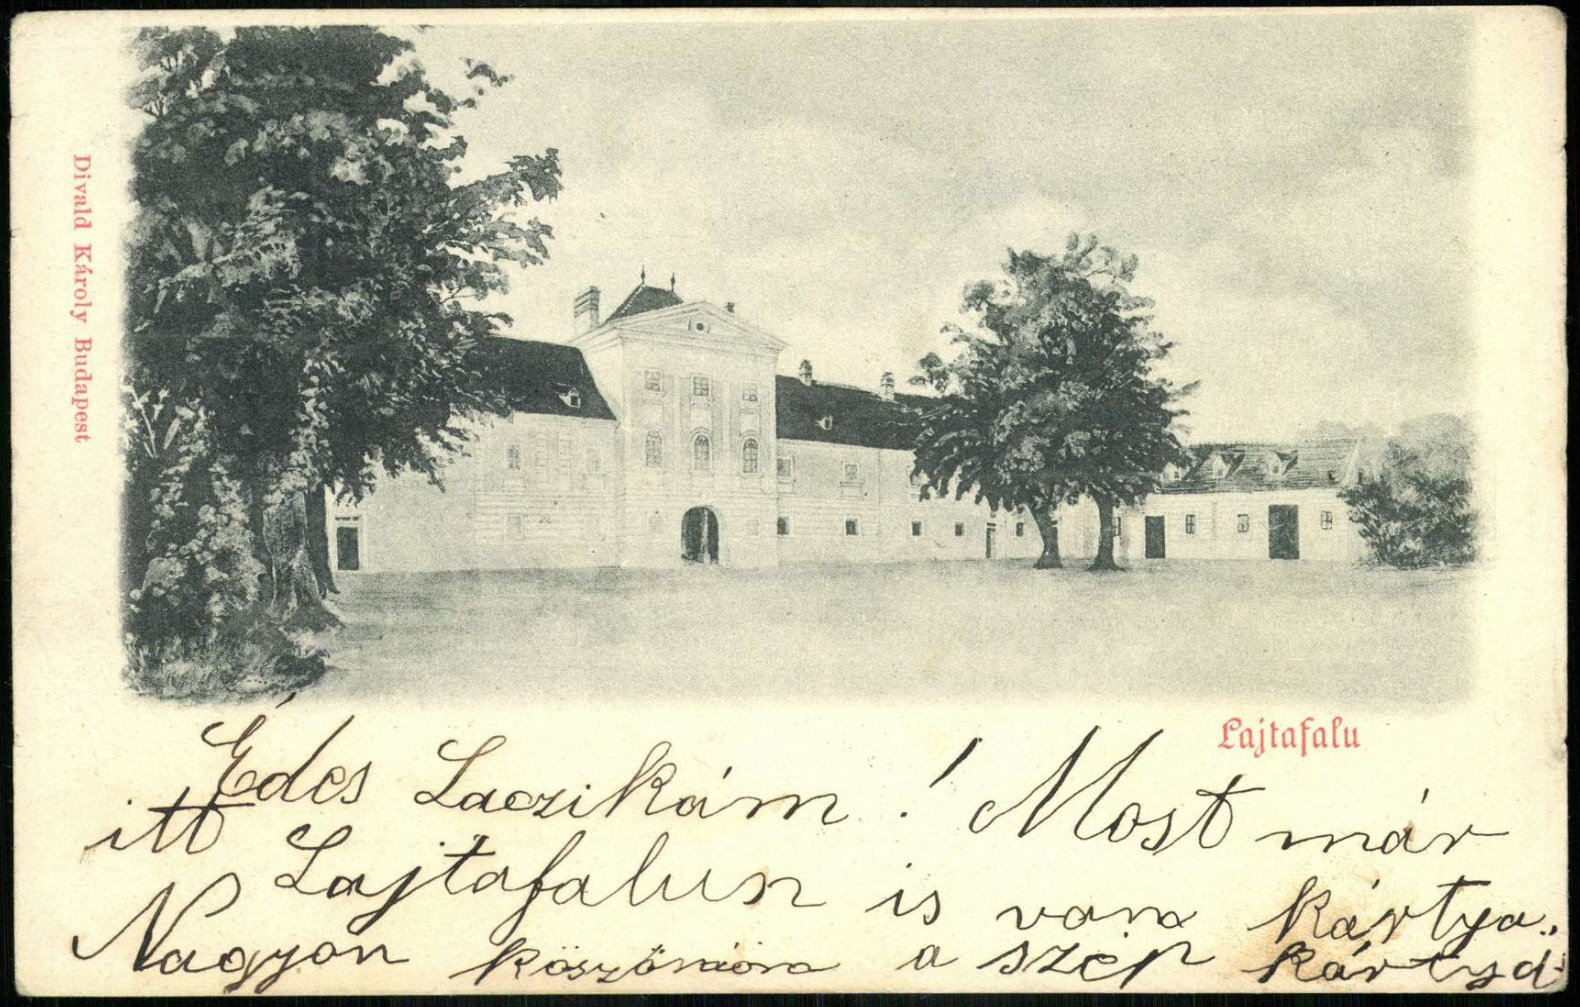 Divald Károly Budapest
Lajtafalu
Édes Laczikám! Most már
itt Lajtafalun is van kártya.
Nagyon a szép kártyá-